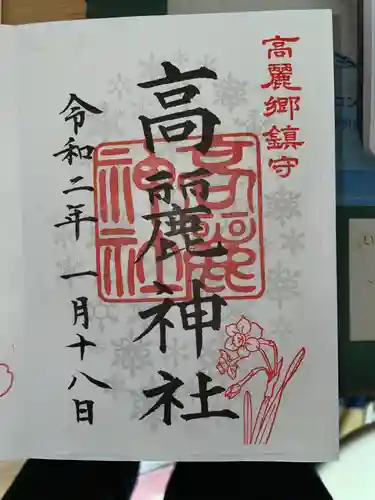 高麗郷鎮守
高麗神社
高麗神社
令和二年一月十八日